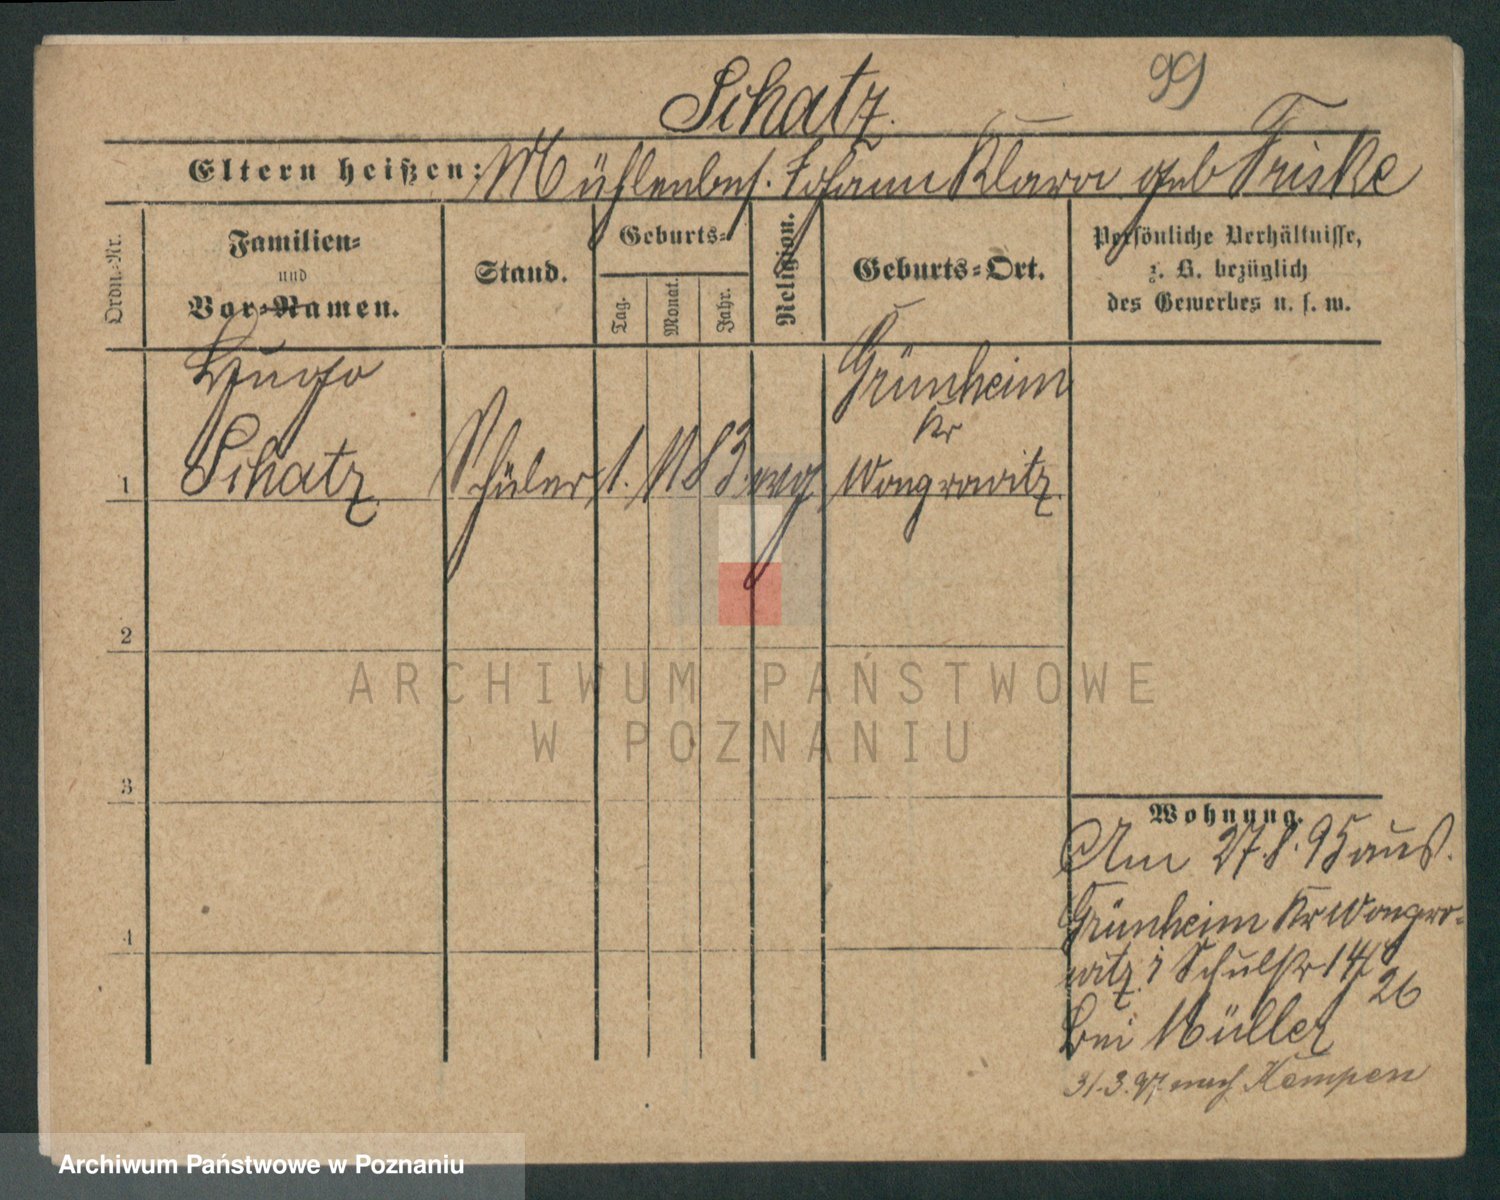 99
Schatz.
Eltern heißen: Mühlenbes. Johann Klara geb Friske
Ordn.-Nr.
Familien-
und
Vor-Namen.
Stand.
Geburts-
Tag.
Monat.
Jahr.
Religion.
Geburts-Ort.
Persönliche Verhältnisse,
z. B. bezüglich
des Gewerbes u. s. w.
Hugo
Schatz
Grünheim
Kr
1 Schüler 1. 11 83 evg Wongrowitz.
2
3
4
ARCHIWUM PAŃSTWOWE
W POZNANIU
Wohnung.
Am 27.8.95 aus.
Grünheim Kr Wongro-
witz Schulstr 14/8
26
bei Müller
31.3.97. nach Kempen
Archiwum Państwowe w Poznaniu